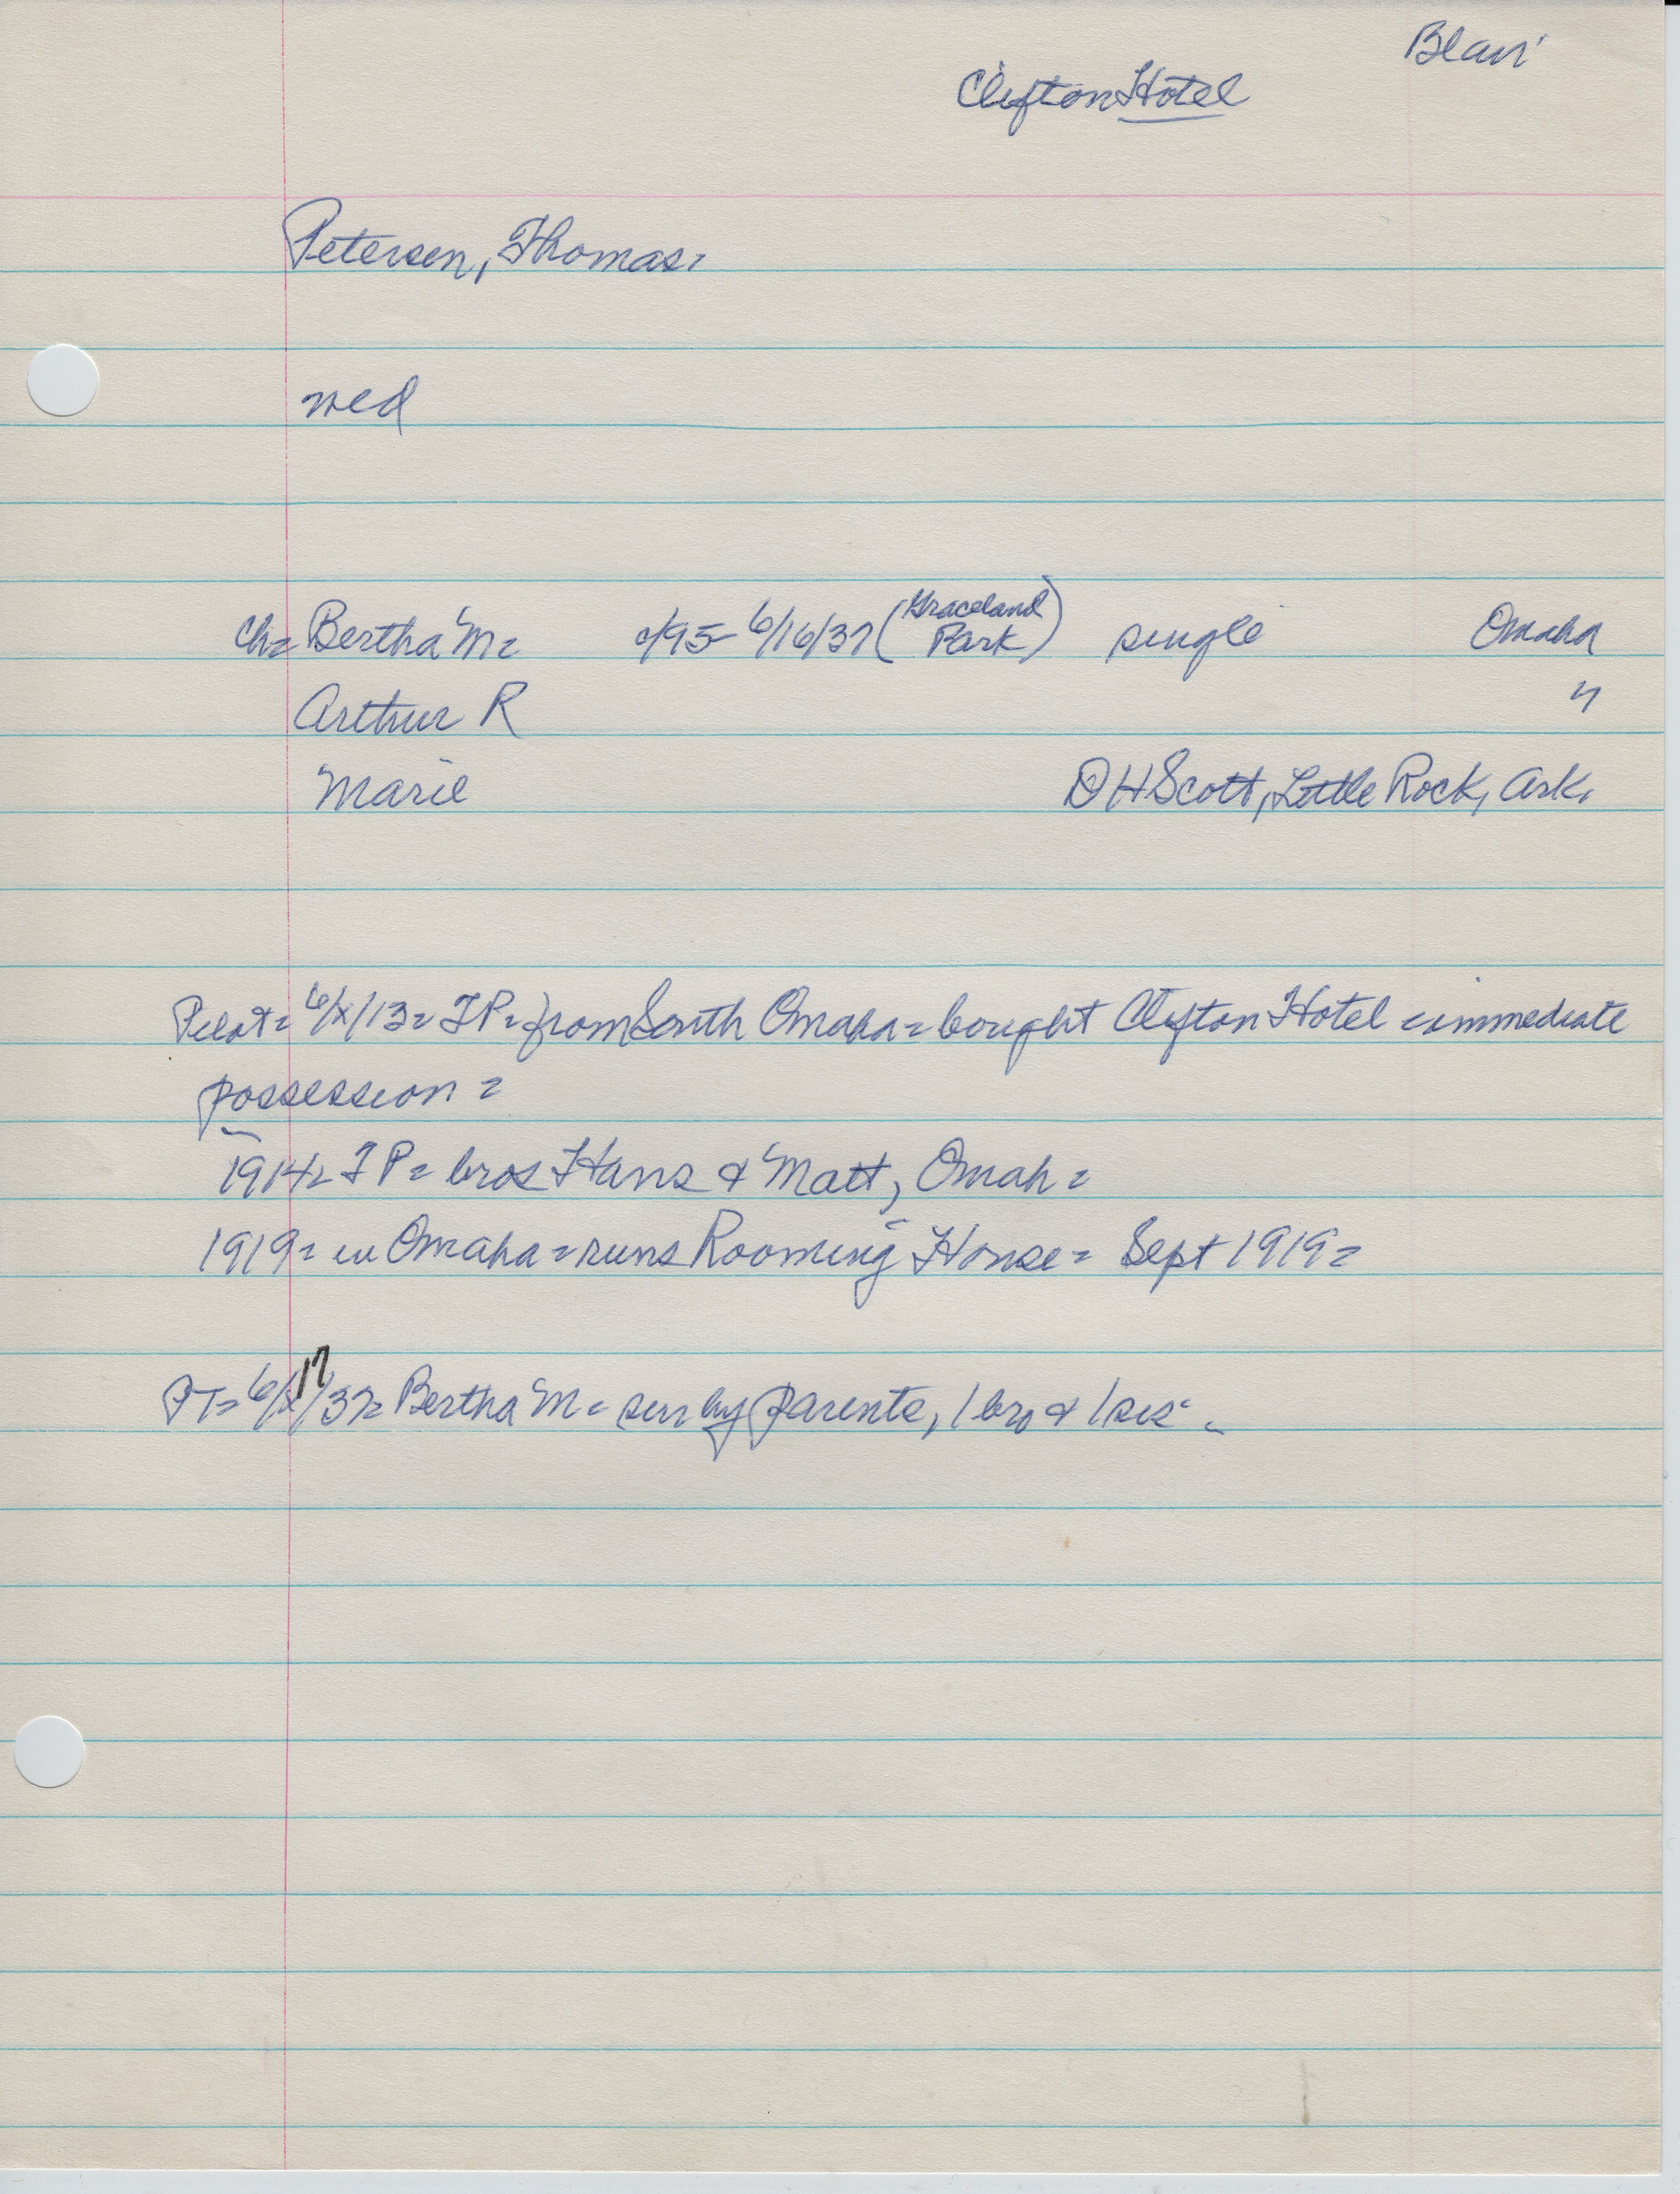 Blair
Clifton Hotel
Petersen, Thomas=
wed
Ch= Bertha M= c/95- 6/16/37 (Graceland Park) single Omaha
Arthur R "
Marie D H Scott, Little Rock, Ark.
Pilot= 6/x/13= TP= from South Omaha= bought Clifton Hotel = immediate
possession =
1914= TP= bros Hans & Matt, Omah=
1919= in Omaha= runs Rooming House= Sept 1919=
PT= 6/17/37= Bertha M= sur by parents, 1 bro & 1 sis =